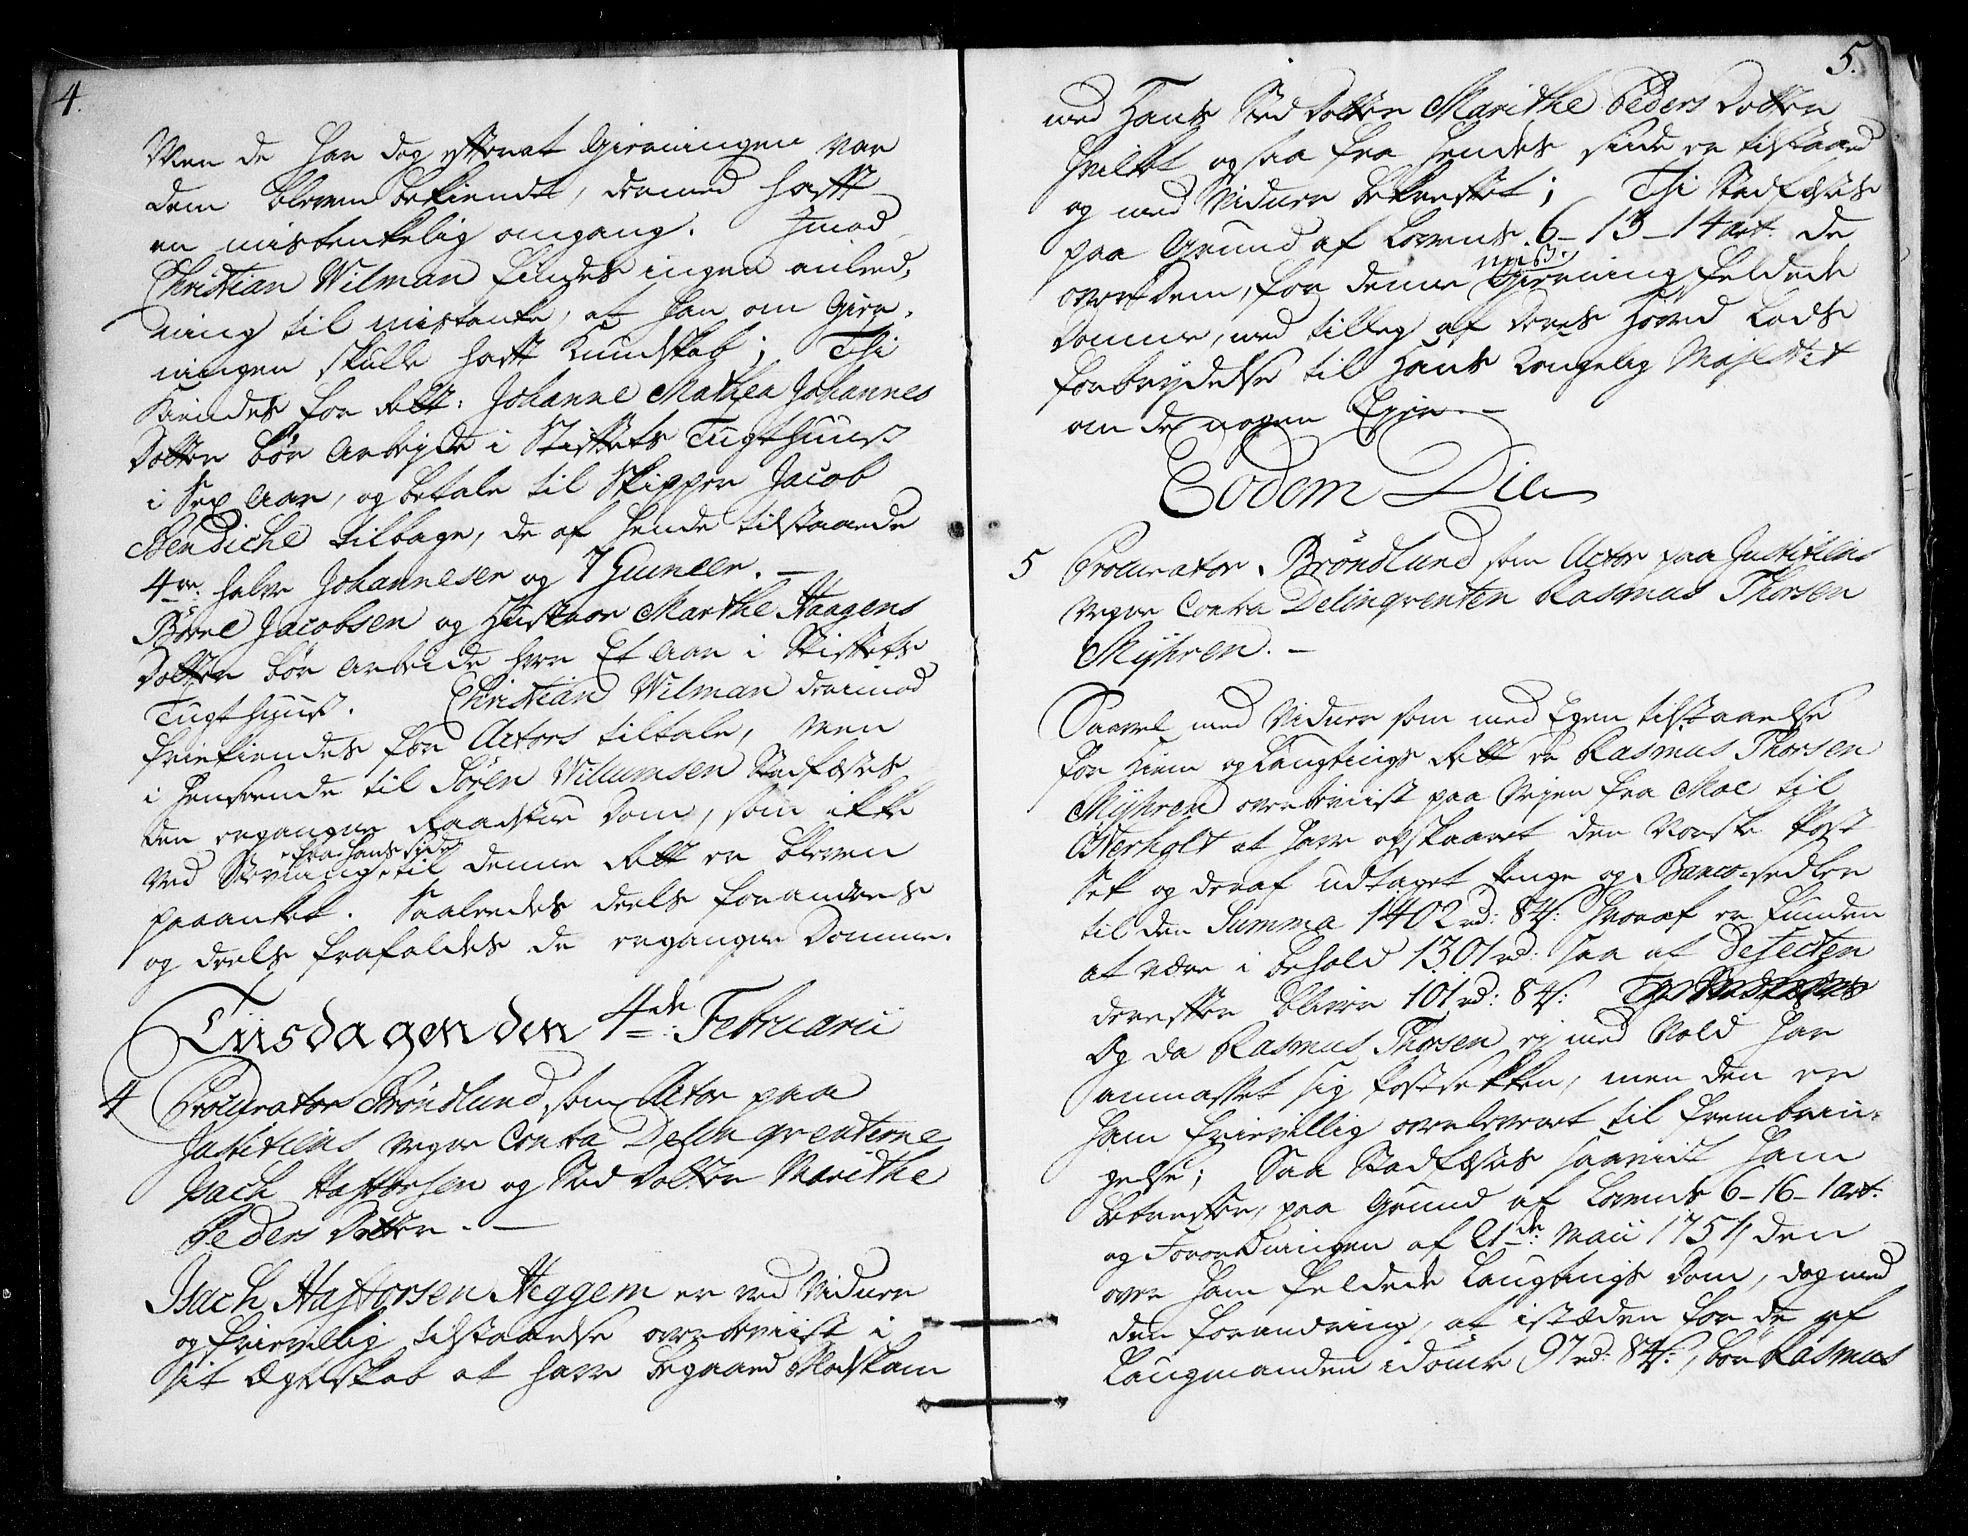 4.
Men de har dog efterat Gierningen var
dem bleven bekiendt, dermed hafft
en mistenkelig omgang. Imod
Christian Wilman findes ingen anled,
ning til mistanke, at han om Gier,
ningen skulle hafft Kundskab; Thi
kiendes for Rett: Johanne Mathea Johannes
Dotter bør arbeyde i Stiftets Tugthuus
i Sex Aar, og betale til Skipper Jacob
Bendiche tilbage, de af hende tilstaaede
4re: halve Johanneser og 7 Guineer. –
Børre Jacobsen og Hustroe Marthe Haagens
Dotter bør arbeide hver Et Aar i Stiftets
Tugthuus. Christian Wilman derimod
friekiendes for Actors tiltale, Men
i henseende til Sören Willumsen Stadfæstes
den ergangne Raadstue Dom, som ikke
ved Stevning fra hans Side til denne Rett er bleven
paaanket. Saaledes deels forandres
og deels frafaldes de ergangne Domme.
Tiisdagen den 4de Februarii
4 Procurator Bröndlund som Actor paa
Justitiens Vegne Contra Delinqventerne
Isach Hafftorsen og Sted Dotter Marithe
Peders Dotter. –
Isach Hafftorsen Heggem er ved Vidner
og frievillig tilstaaelse overbeviist i
sit Ægteskab at have begaaed Blodskam
5.
med Hans Sted Dotter Marithe Peders Dotter
hvilket ogsaa fra hendes side er tilstaaed
og med Vidner bekreftet; Thi Stadfæstes
paa Grund af Lovens 6–13–14 art: de
over Dem, for denne Gierning feldede
Domme, med tilleg af deres Hoved Lods
forbrydelse til Hans Kongelig Majestet
om de nogen Eyer. –
Eodem Die
5 Procurator Bröndlund som Actor paa Justitiens
Vegne Contra Delinqventen Rasmus Thorsen
Myhren. –
Saavel med Vidner som med Egen tilstaaelse
for Hiem og Laugtings Rett er Rasmus Thorsen
Myhren overbeviist paa Veyen fra Moe til
Osterholt at have opskaaret den Norske Post
Sek og deraf udtaget Penge og Banco-sedler
til den Summa 1402 rd: 84 s: hvoraf er funden
at være i behold 1301 rd: saa at Defecten
derefter bliver 101 rd: 84 s:
Og da Rasmus Thorsen ey med Vold har
anmasset sig Postsekken, men den er
ham frievillig overleveret til frembrin,
gelse; Saa Stadfæstes saavidt ham
betreffer, paa Grund af Lovens 6–16–1 art:
og Forordningen af 21de: Maii 1751 den
over ham feldede Laugtings Dom, dog med
den forandring, at isteden for de af
Laugmanden idömte 97 rd: 84 s:, bör Rasmus